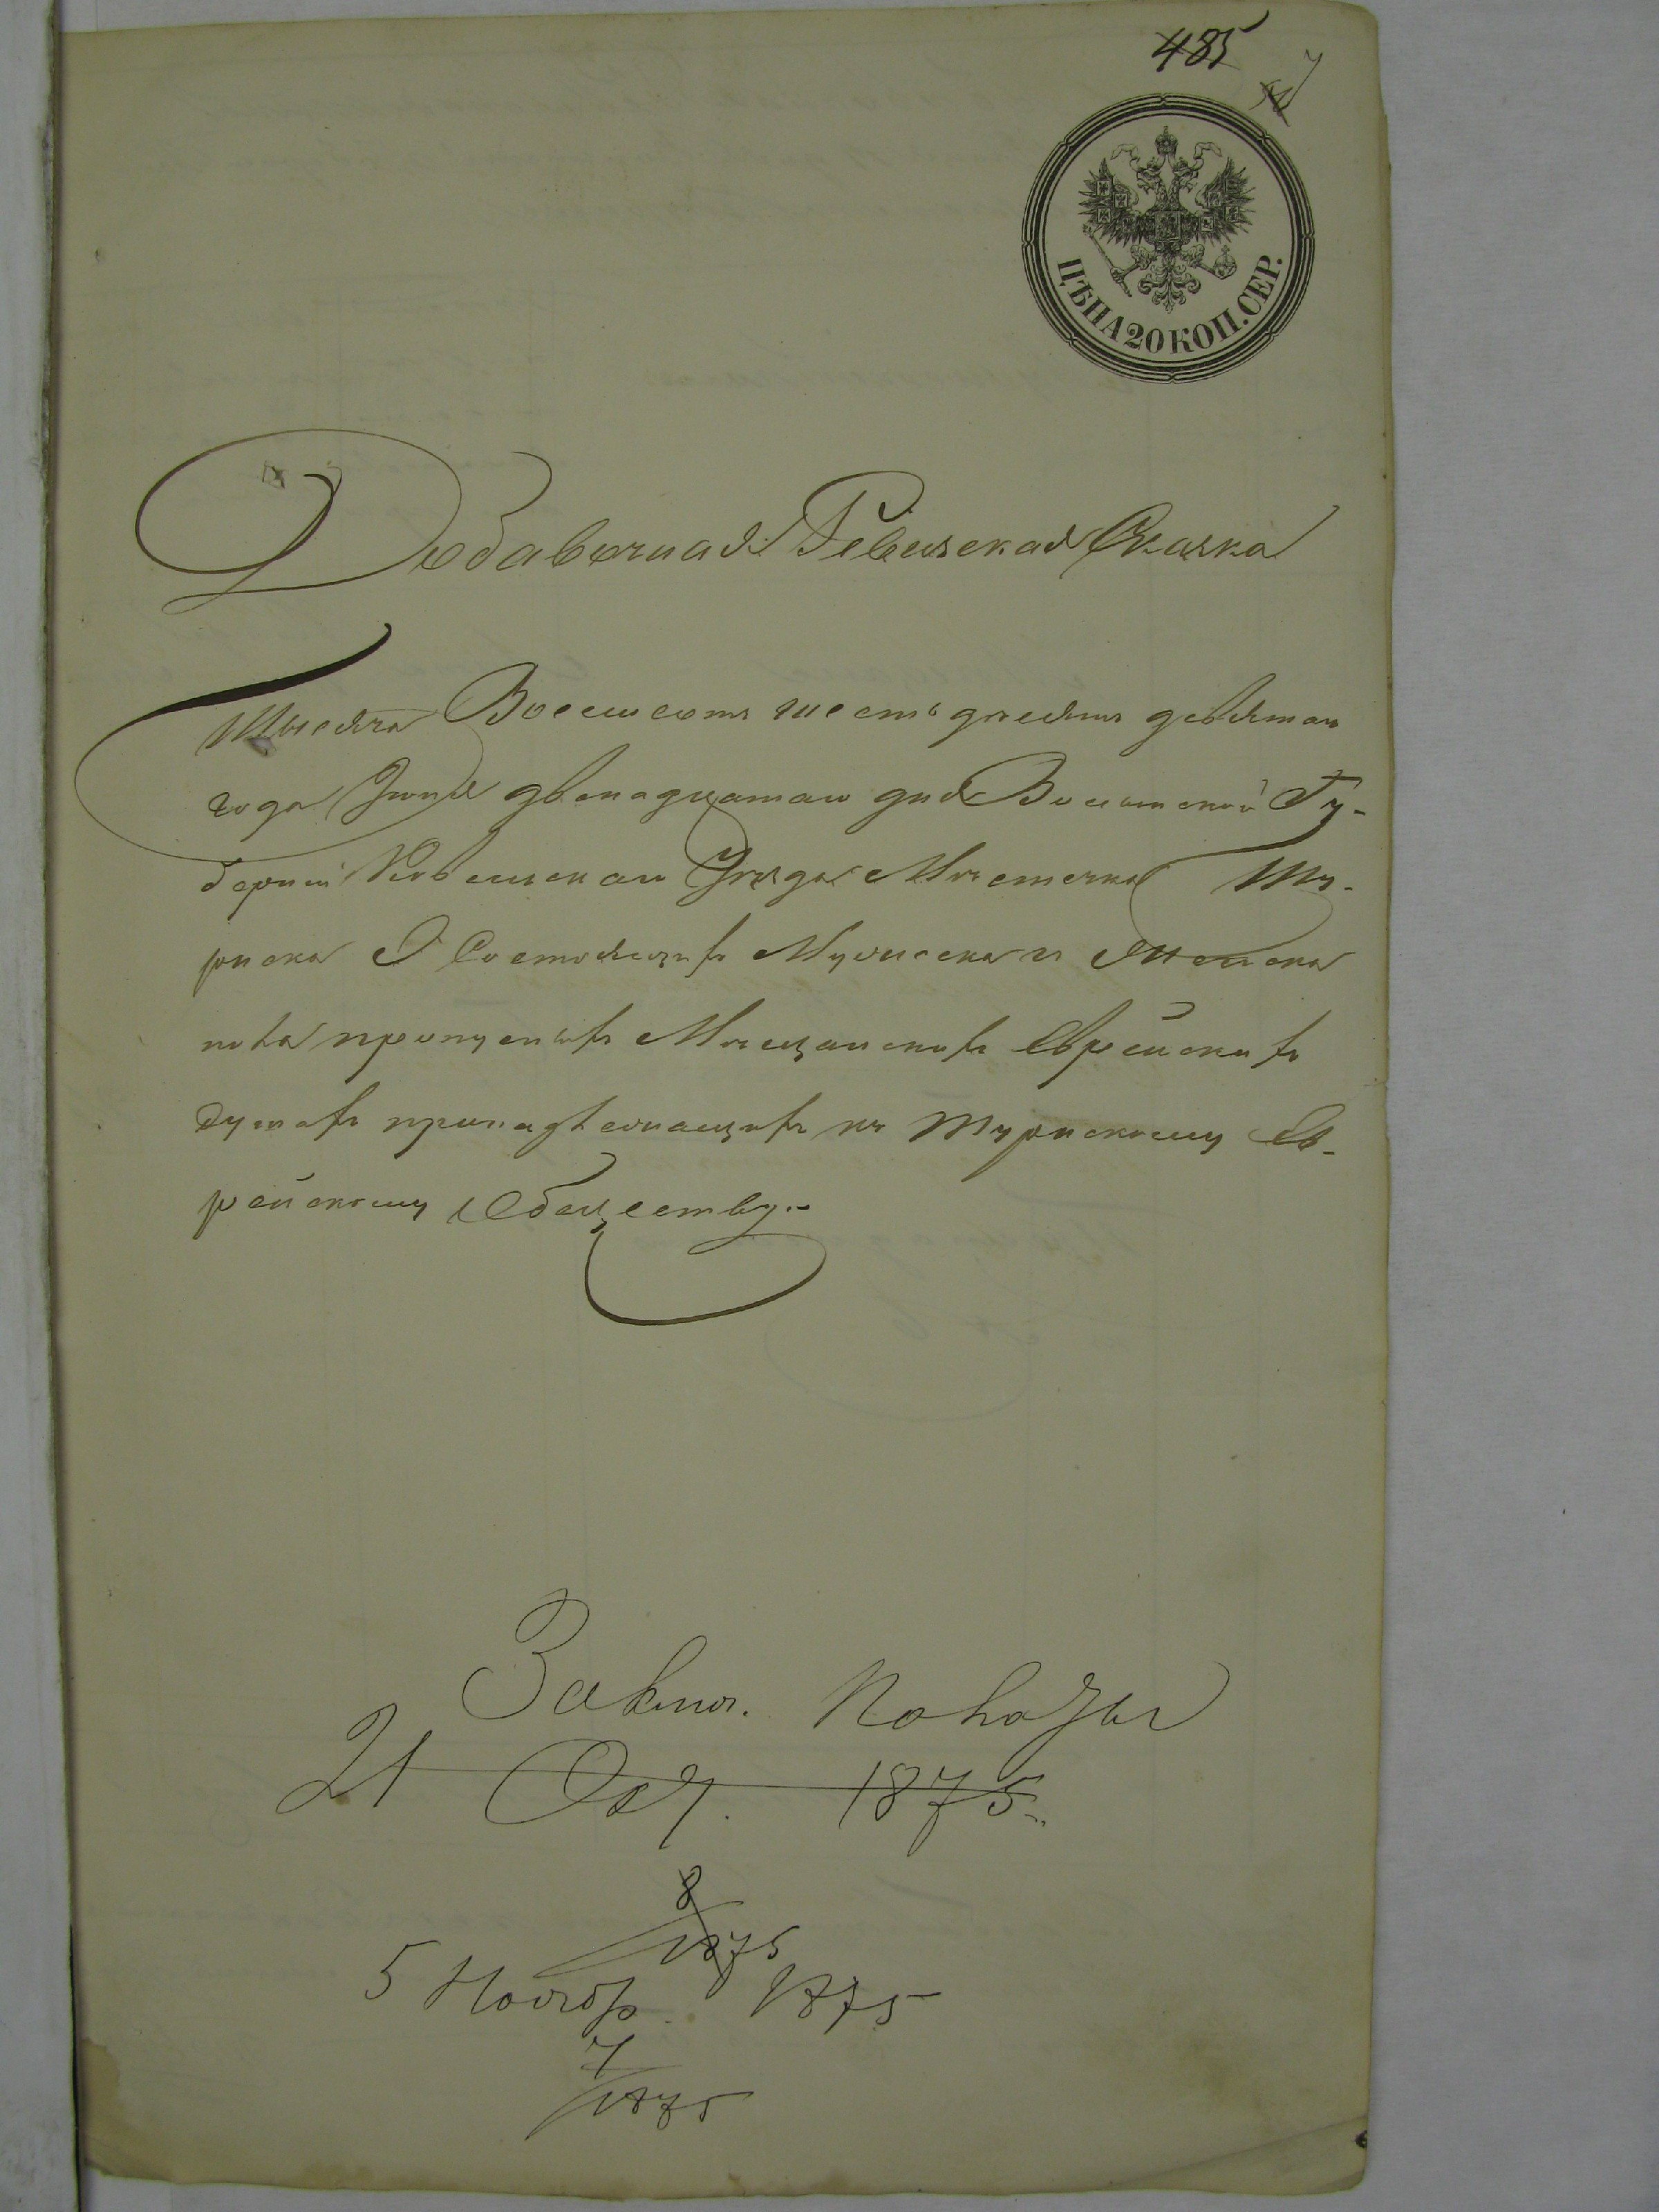 485
7
ЦѢНА 20 КОП. СЕР.
Добавочная Ревизская Сказка
Тысяча Восемсотъ шестьдесятъ девятаго
года Іюня двенадцатаго дня Волынской Гу-
берніи Ковельскаго Уезда Местечка Ту-
рийска О Состоящихъ Мужеска и Женска
пола пропущеныхъ Мещанскихъ Еврейскихъ
душахъ принадлежащихъ къ Турийскому Ев-
рейскому Обществу.-
Заключ. показы
21 Окт. 1875.
8
1875
5 Нояб. 1875
7
1875